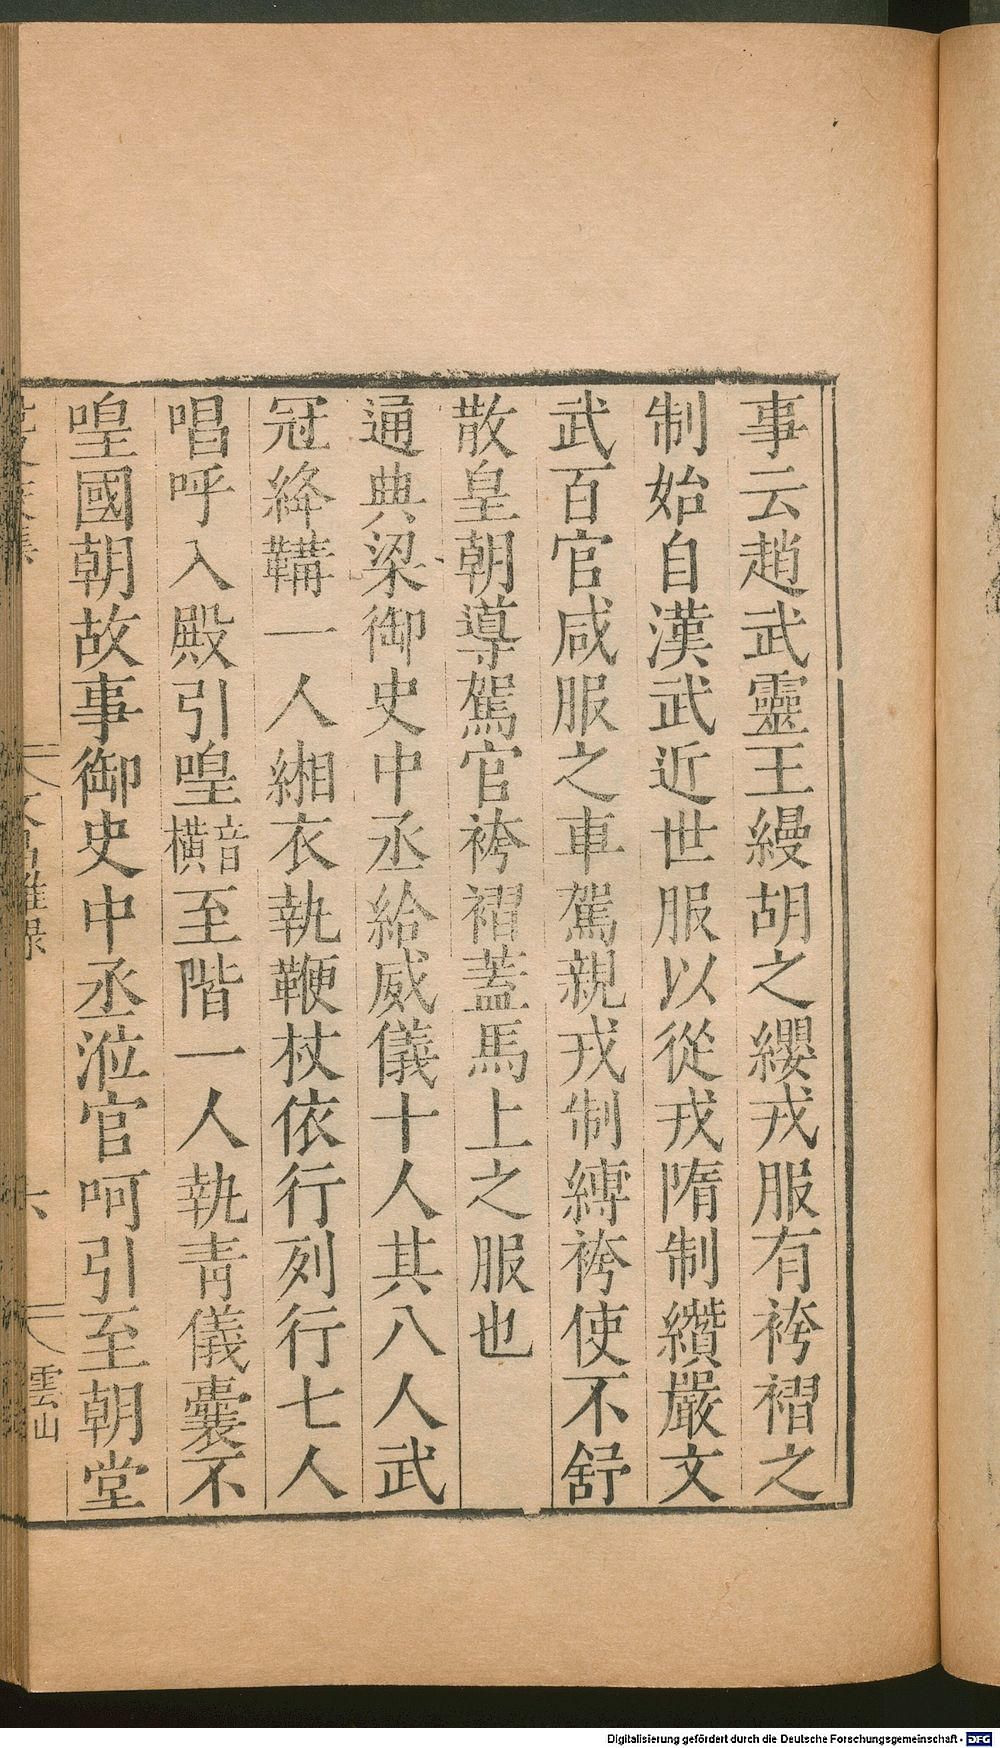 事云趙武靈王縵胡之纓戎服有袴褶之
制始自漢武近世服以從戎隋制纘嚴文
武百官咸服之車駕親戎制縛袴使不舒
散皇朝導駕官袴褶蓋馬上之服也
通典梁御史中丞給威儀十人其八人武
冠絳鞲一人緗衣執鞭杖依行列行七人
唱呼入殿引喤音橫至階一人執青儀囊不
喤國朝故事御史中丞涖官呵引至朝堂
文昌雜錄
六
雲山
Digitalisierung gefördert durch die Deutsche Forschungsgemeinschaft - DFG